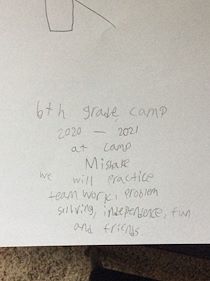 6th grade camp
2020 — 2021
at camp
Mistake
we will practice
team work, problem
sullving, independence, fun
and friends.